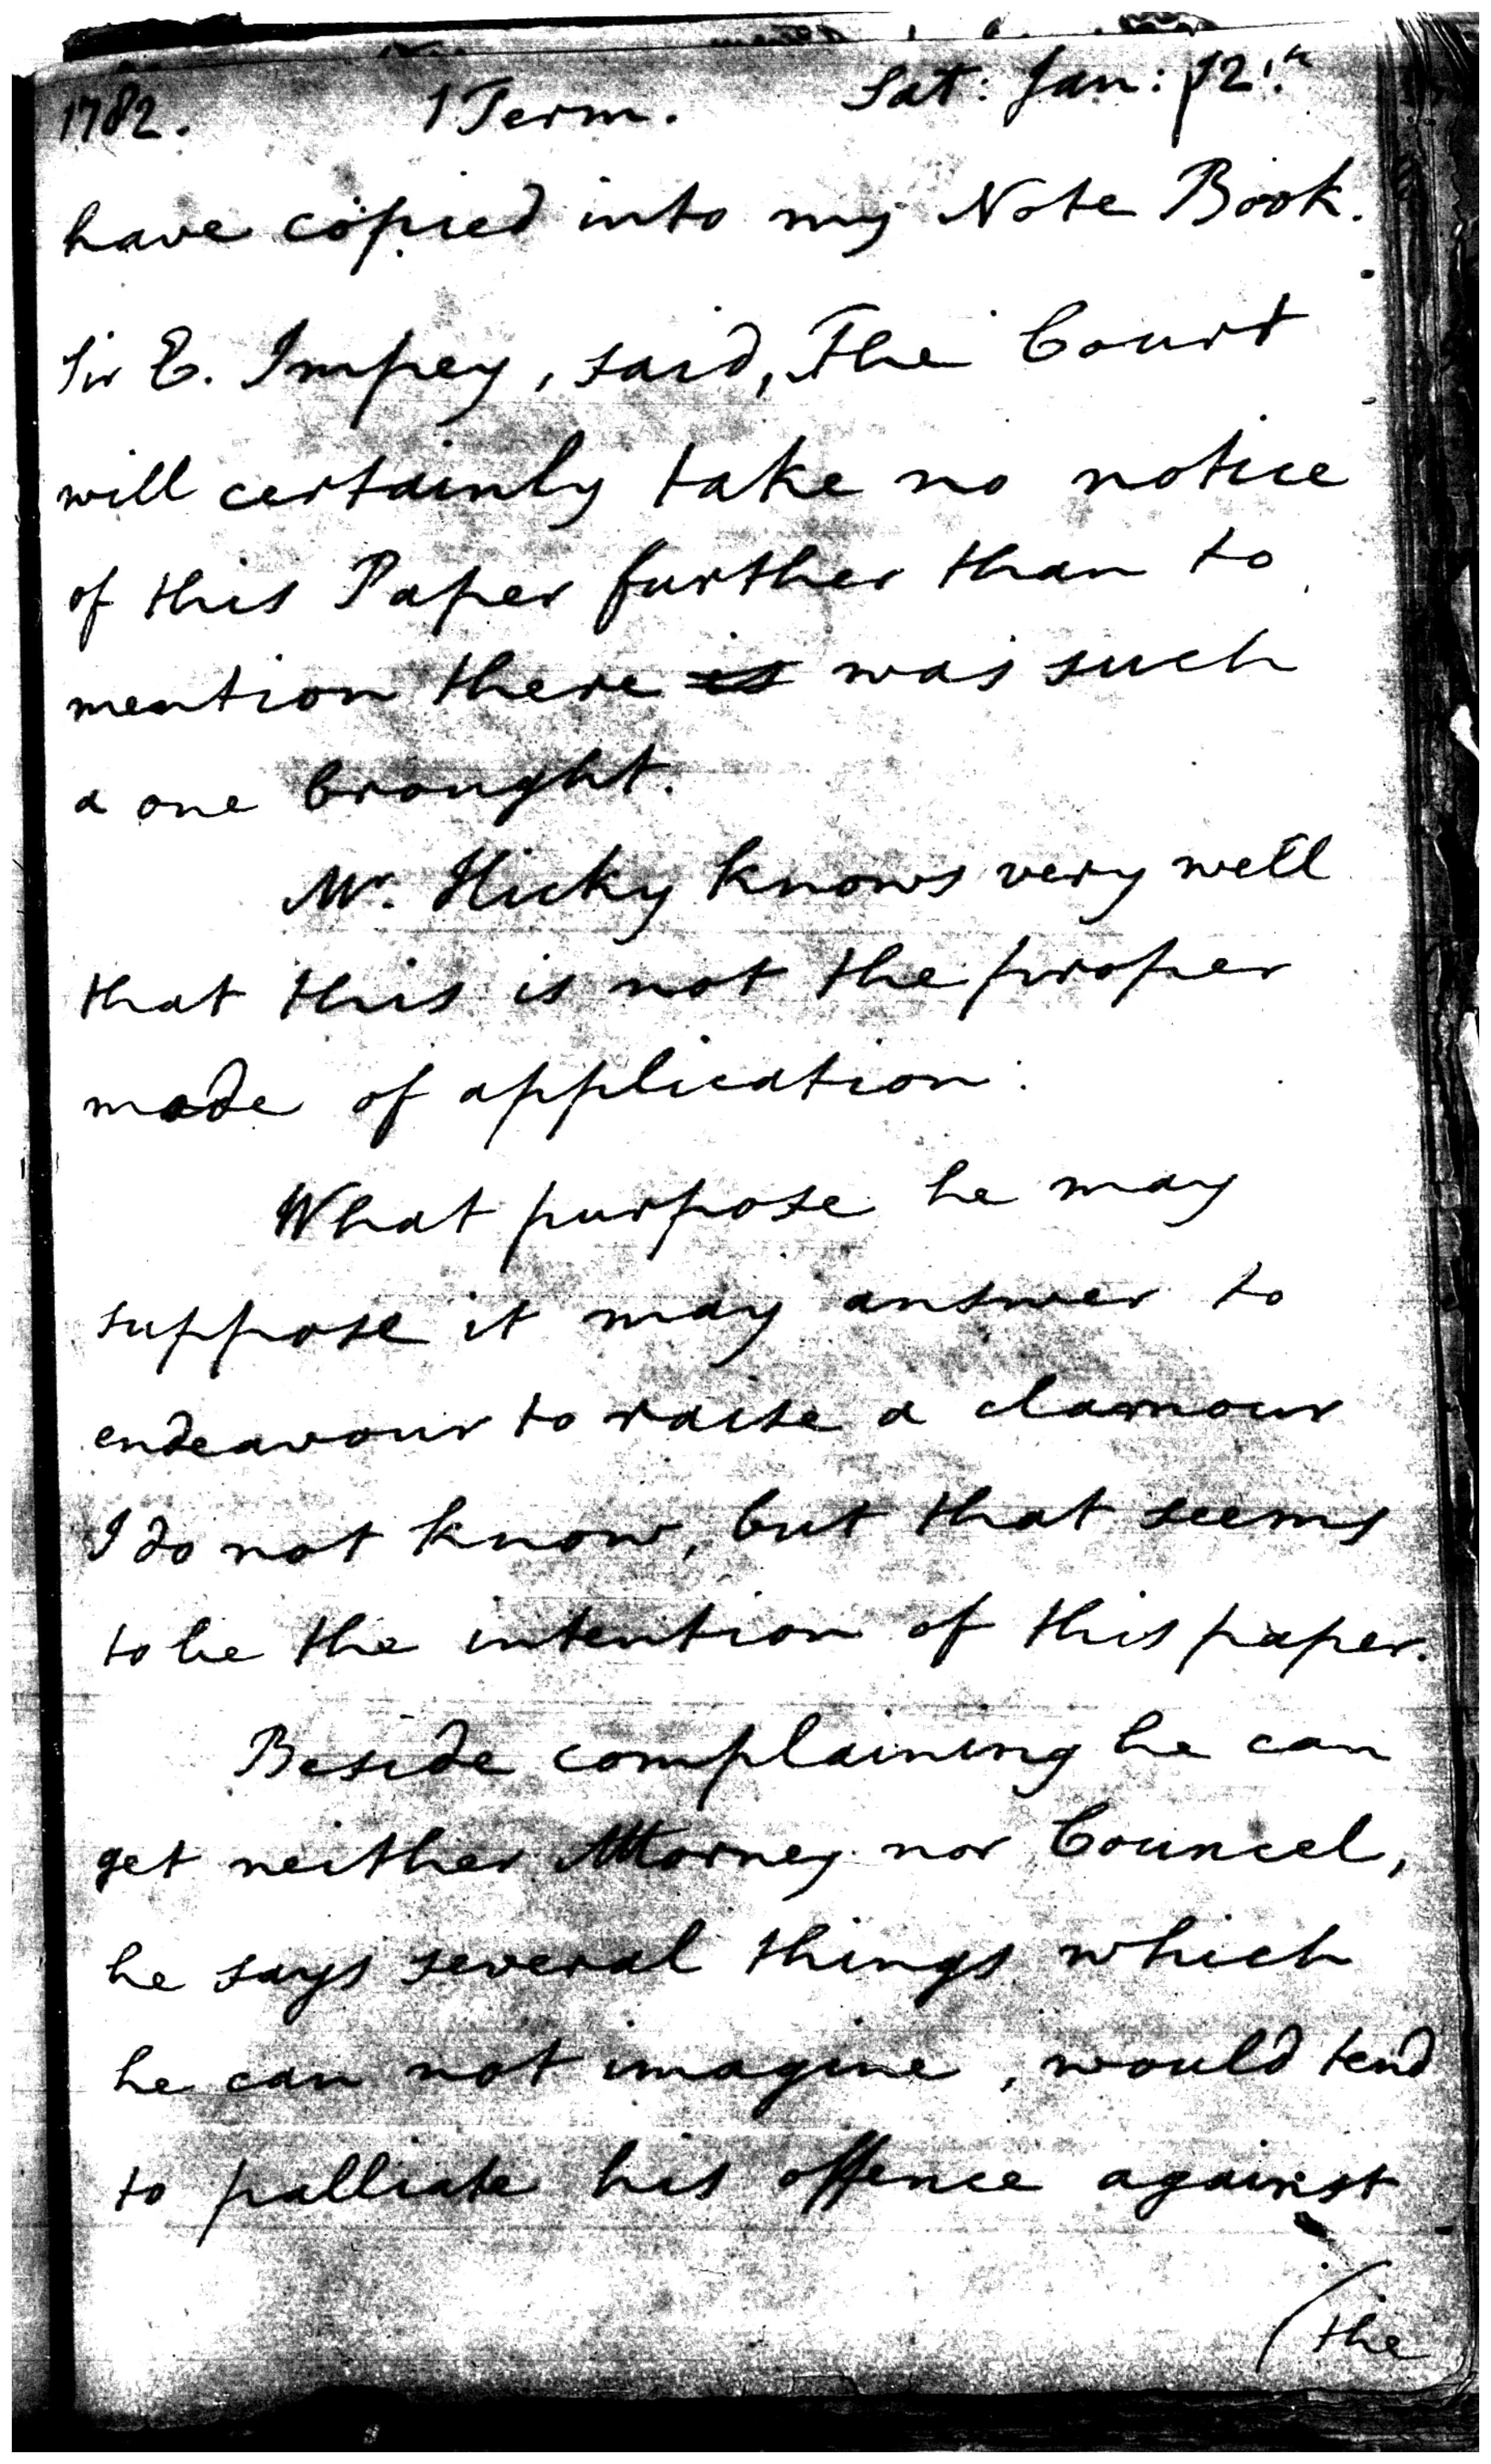 1782. 1 Term. Sat: Jan: 12.th
have copied into my Note Book.
Sir E. Impey, said, The Court
will certainly take no notice
of this Paper further than to
mention there is was such
a one brought.
Mr. Hicky knows very well
that this is not the proper
mode of application.
What purpose he may
suppose it may answer to
endeavour to raise a clamour
I do not know, but that seems
to be the intention of this paper.
Beside complaining he can
get neither Attorney nor Councel,
he says several things which
he can not imagine, would tend
to palliate his offence against
(the